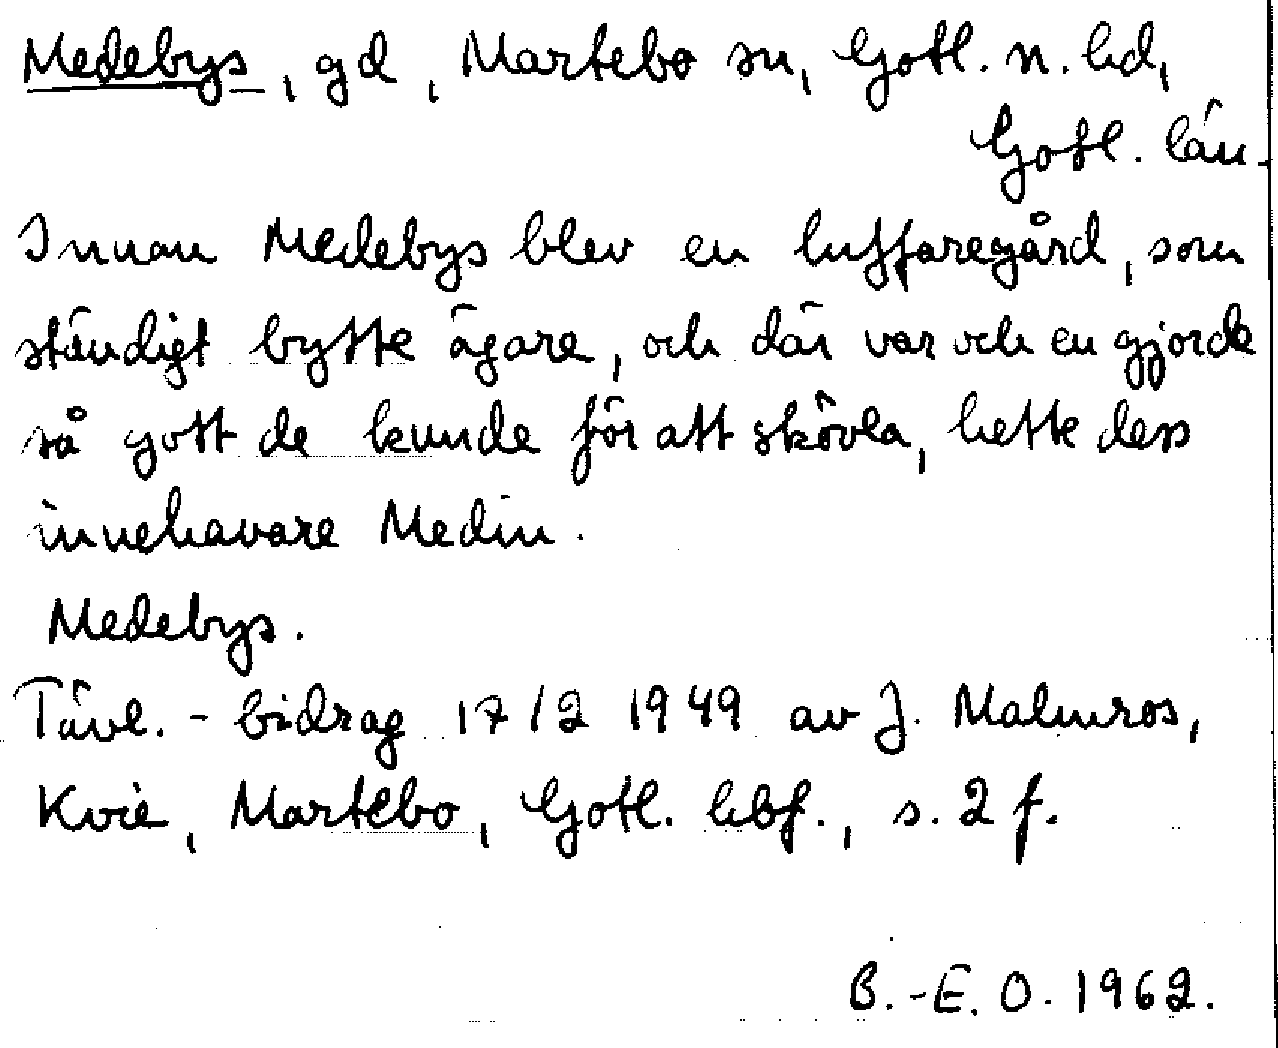 Medebys, gd, Martebo sn, Gotl. n. hd,
Gotl. län.
Innan Medebys blev en luffaregård, som
ständigt bytte ägare, och där var och en gjorde
så gott de kunde för att skövla, hette dess
innehavare Medin.
Medebys.
Tävl. - bidrag 17/2 1949 av J. Malmros,
Kvie, Martebo, Gotl. hbf., s. 2 f.
B.-E. O. 1962.